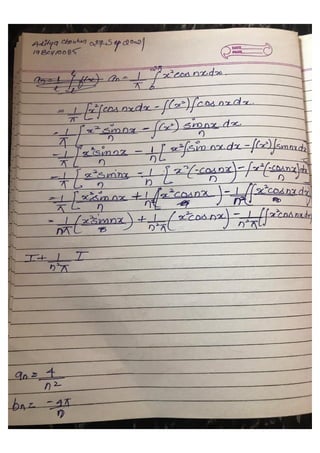 Aditya Chauhan
19BCY10085
DATE
PAGE
an = 1/π ∫ x² cos nx dx.
= 1/π [x² ∫cos nx dx - ∫(x²) ∫cos nx dx.
= 1/π [ x² sin nx / n - ∫(x²) sin nx / n dx.
= 1/π [ x² sin nx / n - 1/n [ x² ∫sin nx dx - ∫(x²) ∫sin nx dx
= 1/π [ x² sin nx / n - 1/n [ x² (-cos nx / n) - ∫x² (-cos nx / n) dx
= 1/π [ x² sin nx / n + 1/n² ∫x² cos nx - 1/n² ∫x² cos nx dx
= 1/nπ (x² sin nx) + 1/n²π (x² cos nx) - 1/n²π ∫x² cos nx dx
I + 1/n²π I
an = 4/n²
bn = -4π/n